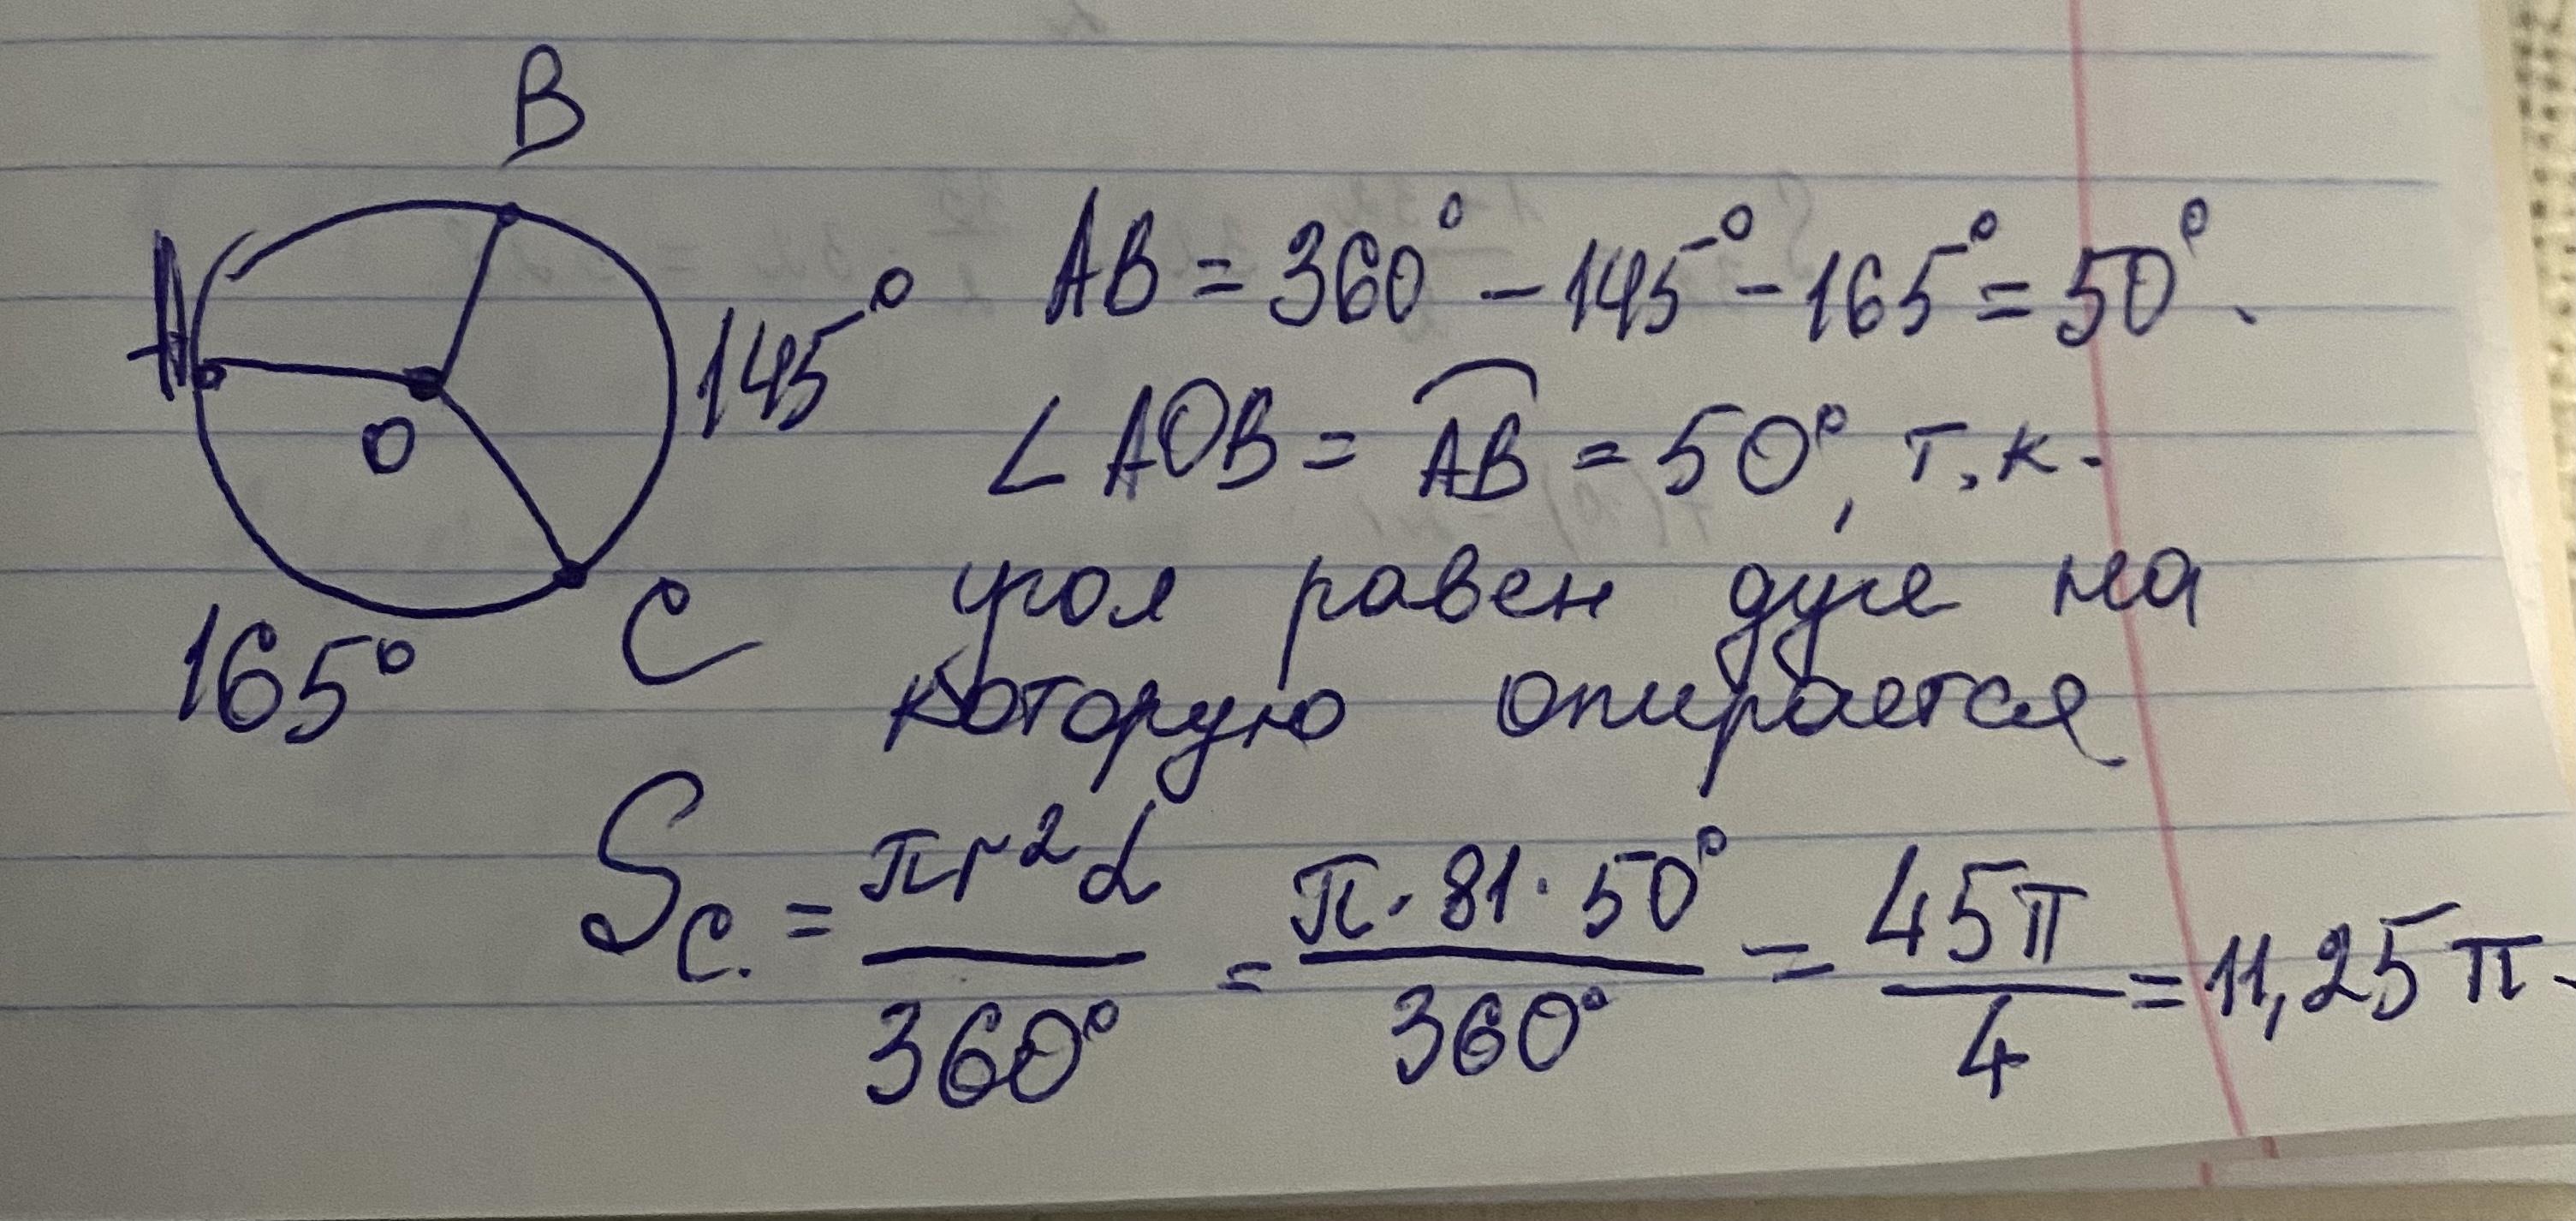 B
A
O
145°
C
165°
AB = 360° - 145° - 165° = 50°.
∠AOB = ⌒AB = 50°, т.к.
угол равен дуге на
которую опирается
Sс. = πr²α/360° = π·81·50°/360° = 45π/4 = 11,25π.